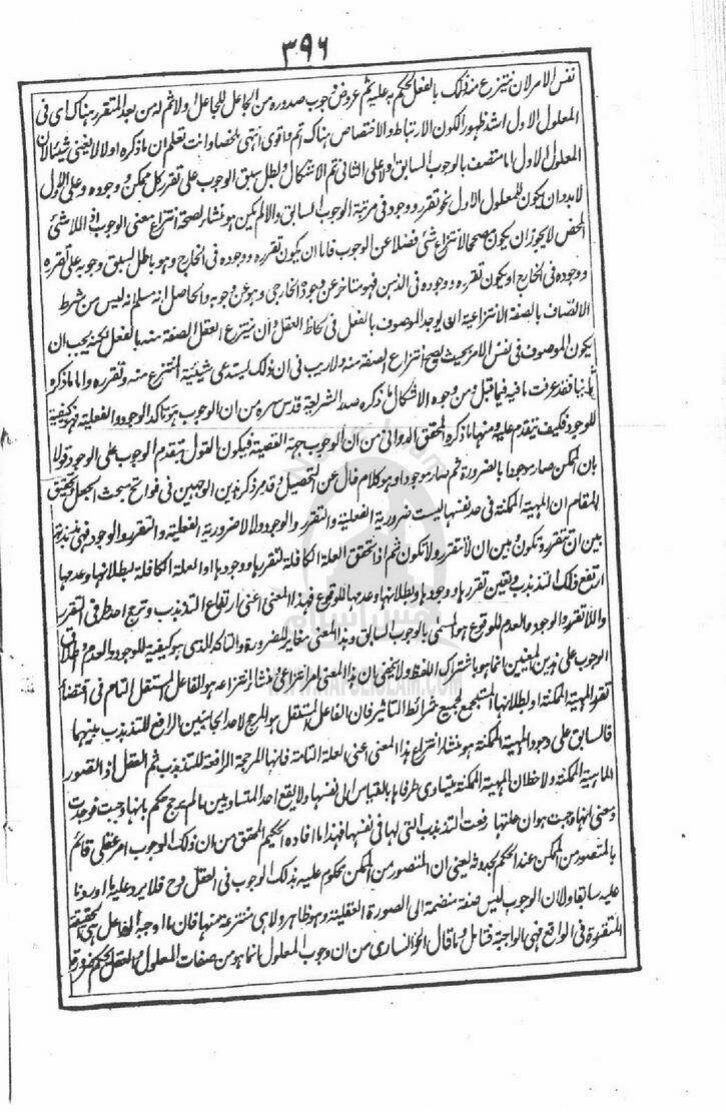 ٣٩٦
نفس الامر لان ينتزع منه ذلك بالفعل الحكم به عليه ثم عروض وجوب صدوره من الجاعل للجاعل اولا ثم له من بعد المتقرر هناك اى فى
المعلول الاول اشد ظهورا لكون الارتباط والاختصاص هناك تم واقوى انتهى ملخصا وانت تعلم ان ما ذكره اولا لا يغنى شيئا لان
المعلول الاول اما متصف بالوجوب السابق وعلى الثانى تم الاشكال وبطل سبق الوجوب على تقرر كل ممكن ووجوده وعلى الاول
لا بد ان يكون للمعلول الاول نحو تقرر ووجود فى مرتبة الوجوب السابق والا لم يكن هو منشاء لصحة انتزاع معنى الوجوب اذ اللاشئ
المحض لا يجوز ان يكون مصححا لانتزاع شئ فضلا عن الوجوب فاما ان يكون تقرره ووجوده فى الخارج وهو باطل لسبق وجوبه على تقرره
ووجوده فى الخارج او يكون تقرره ووجوده فى الذهن فهو متاخر عن وجوده الخارجى وهو عن وجوبه والحاصل انه مسلم انه ليس من شرط
الاتصاف بالصفة الانتزاعية ان يوجد الموصوف بالفعل فى لحاظ العقل وان ينتزع العقل الصفة منه بالفعل لكنه يجب ان
يكون الموصوف فى نفس الامر بحيث يصح انتزاع الصفة منه ولا ريب فى ان ذلك يستدعى شيئية المنتزع منه وتقرره واما ما ذكره
ثانيا فقد عرفت ما فيه فيما قبل ومن وجوه الاشكال ما ذكره صدر الشريعة قدس سره من ان الوجوب هو تاكد الوجود والفعلية فهو كيفية
للوجود فكيف يتقدم عليه ومنها ما ذكره المحقق الدوانى من ان الوجوب جهة القضية فيكون القول بتقدم الوجوب على الوجود قولا
بان الممكن صار موجودا بالضرورة ثم صار موجودا وهو كلام خال عن التحصيل وقد مر ذكر هذين الوجهين فى فواتح مبحث الجعل وتحقيق
المقام ان المهية الممكنة فى حد نفسها ليست ضرورية الفعلية والتقرر والوجود ولا لا ضرورية الفعلية والتقرر والوجود فهى متذبذبة
بين ان تتقرر وتكون وبين ان لا تتقرر ولا تكون ثم اذا تحقق العلة الكافلة لتقررها ووجودها او العلة الكافلة لبطلانها وعدمها
ارتفع ذلك التذبذب وتعين تقررها ووجودها وبطلانها وعدمها للوقوع فهذا المعنى اعنى ارتفاع التذبذب وترجح احد طرفى التقرر
واللا تقرر والوجود والعدم للوقوع هو المسمى بالوجوب السابق وهذا المعنى مغاير للضرورة والتاكد الذى هو كيفية للوجود والعدم واطلاق
الوجوب على هذين المعنيين انما هو باشتراك اللفظ ولا يخفى ان هذا المعنى امر انتزاعى ومنشاء انتزاعه هو الفاعل المستقل التام فى اقتضاء
تقرر المهية الممكنة او بطلانها المستجمع لجميع شرائط التاثير فان الفاعل المستقل هو المرجح لاحد الجانبين الرافع للتذبذب بينهما
فالسابق على وجود المهية الممكنة هو منشاء انتزاع هذا المعنى اعنى العلة التامة فانها المرجحة الرافعة للتذبذب ثم العقل اذا تصور
الماهية الممكنة ولاحظ ان المهية الممكنة يتساوى طرفاها بالقياس الى نفسها ولا يقع احد المتساويين ما لم يترجح حكم بانها وجبت فوجدت
ومعنى انها وجبت هو ان علتها رفعت التذبذب التى لها فى نفسها فهذا ما افاده الحكيم المحقق من ان ذلك الوجوب امر عقلى قائم
بالمتصور من الممكن عند الحكم بحدوثه يعنى ان المتصور من الممكن محكوم عليه بذلك الوجوب فى العقل وح فلا يرد علينا ما اوردنا
عليه سابقا ولان الوجوب ليس صفة منضمة الى الصورة العقلية وهو ظاهر ولا هى منتزعة منها فان ما اوجبه الفاعل هى الحقيقة
المتقررة فى الواقع فهى الواجبة فتامل وما قال الخوانسارى من ان وجوب المعلول انما هو من صفات المعلول